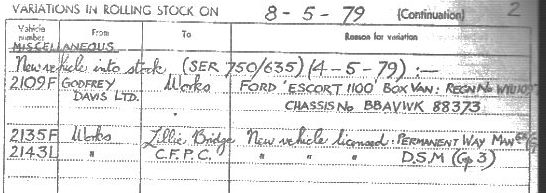 VARIATIONS IN ROLLING STOCK ON 8-5-79 (Continuation) 2
Vehicle number From To Reason for variation
MISCELLANEOUS
New vehicle into stock (SER 750/635) (4-5-79) :—
2109F GODFREY DAVIS LTD. Works FORD 'ESCORT 1100' BOX VAN: REGN No
CHASSIS No BBAVWK 88373
2135F Works Lillie Bridge New vehicle licensed: PERMANENT WAY MAN
2143L " C.F.P.C. " " " D.S.M (Gp 3)